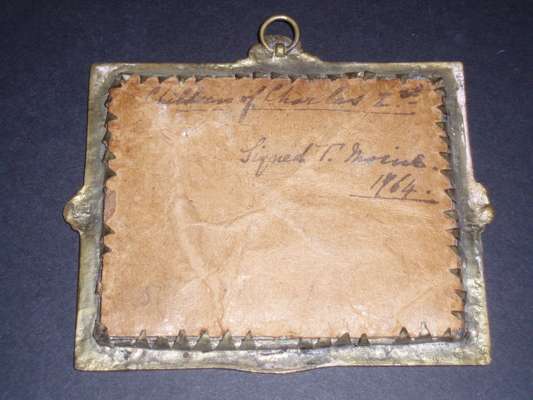 Children of Charles 2nd
Signed T. Moine
1964.